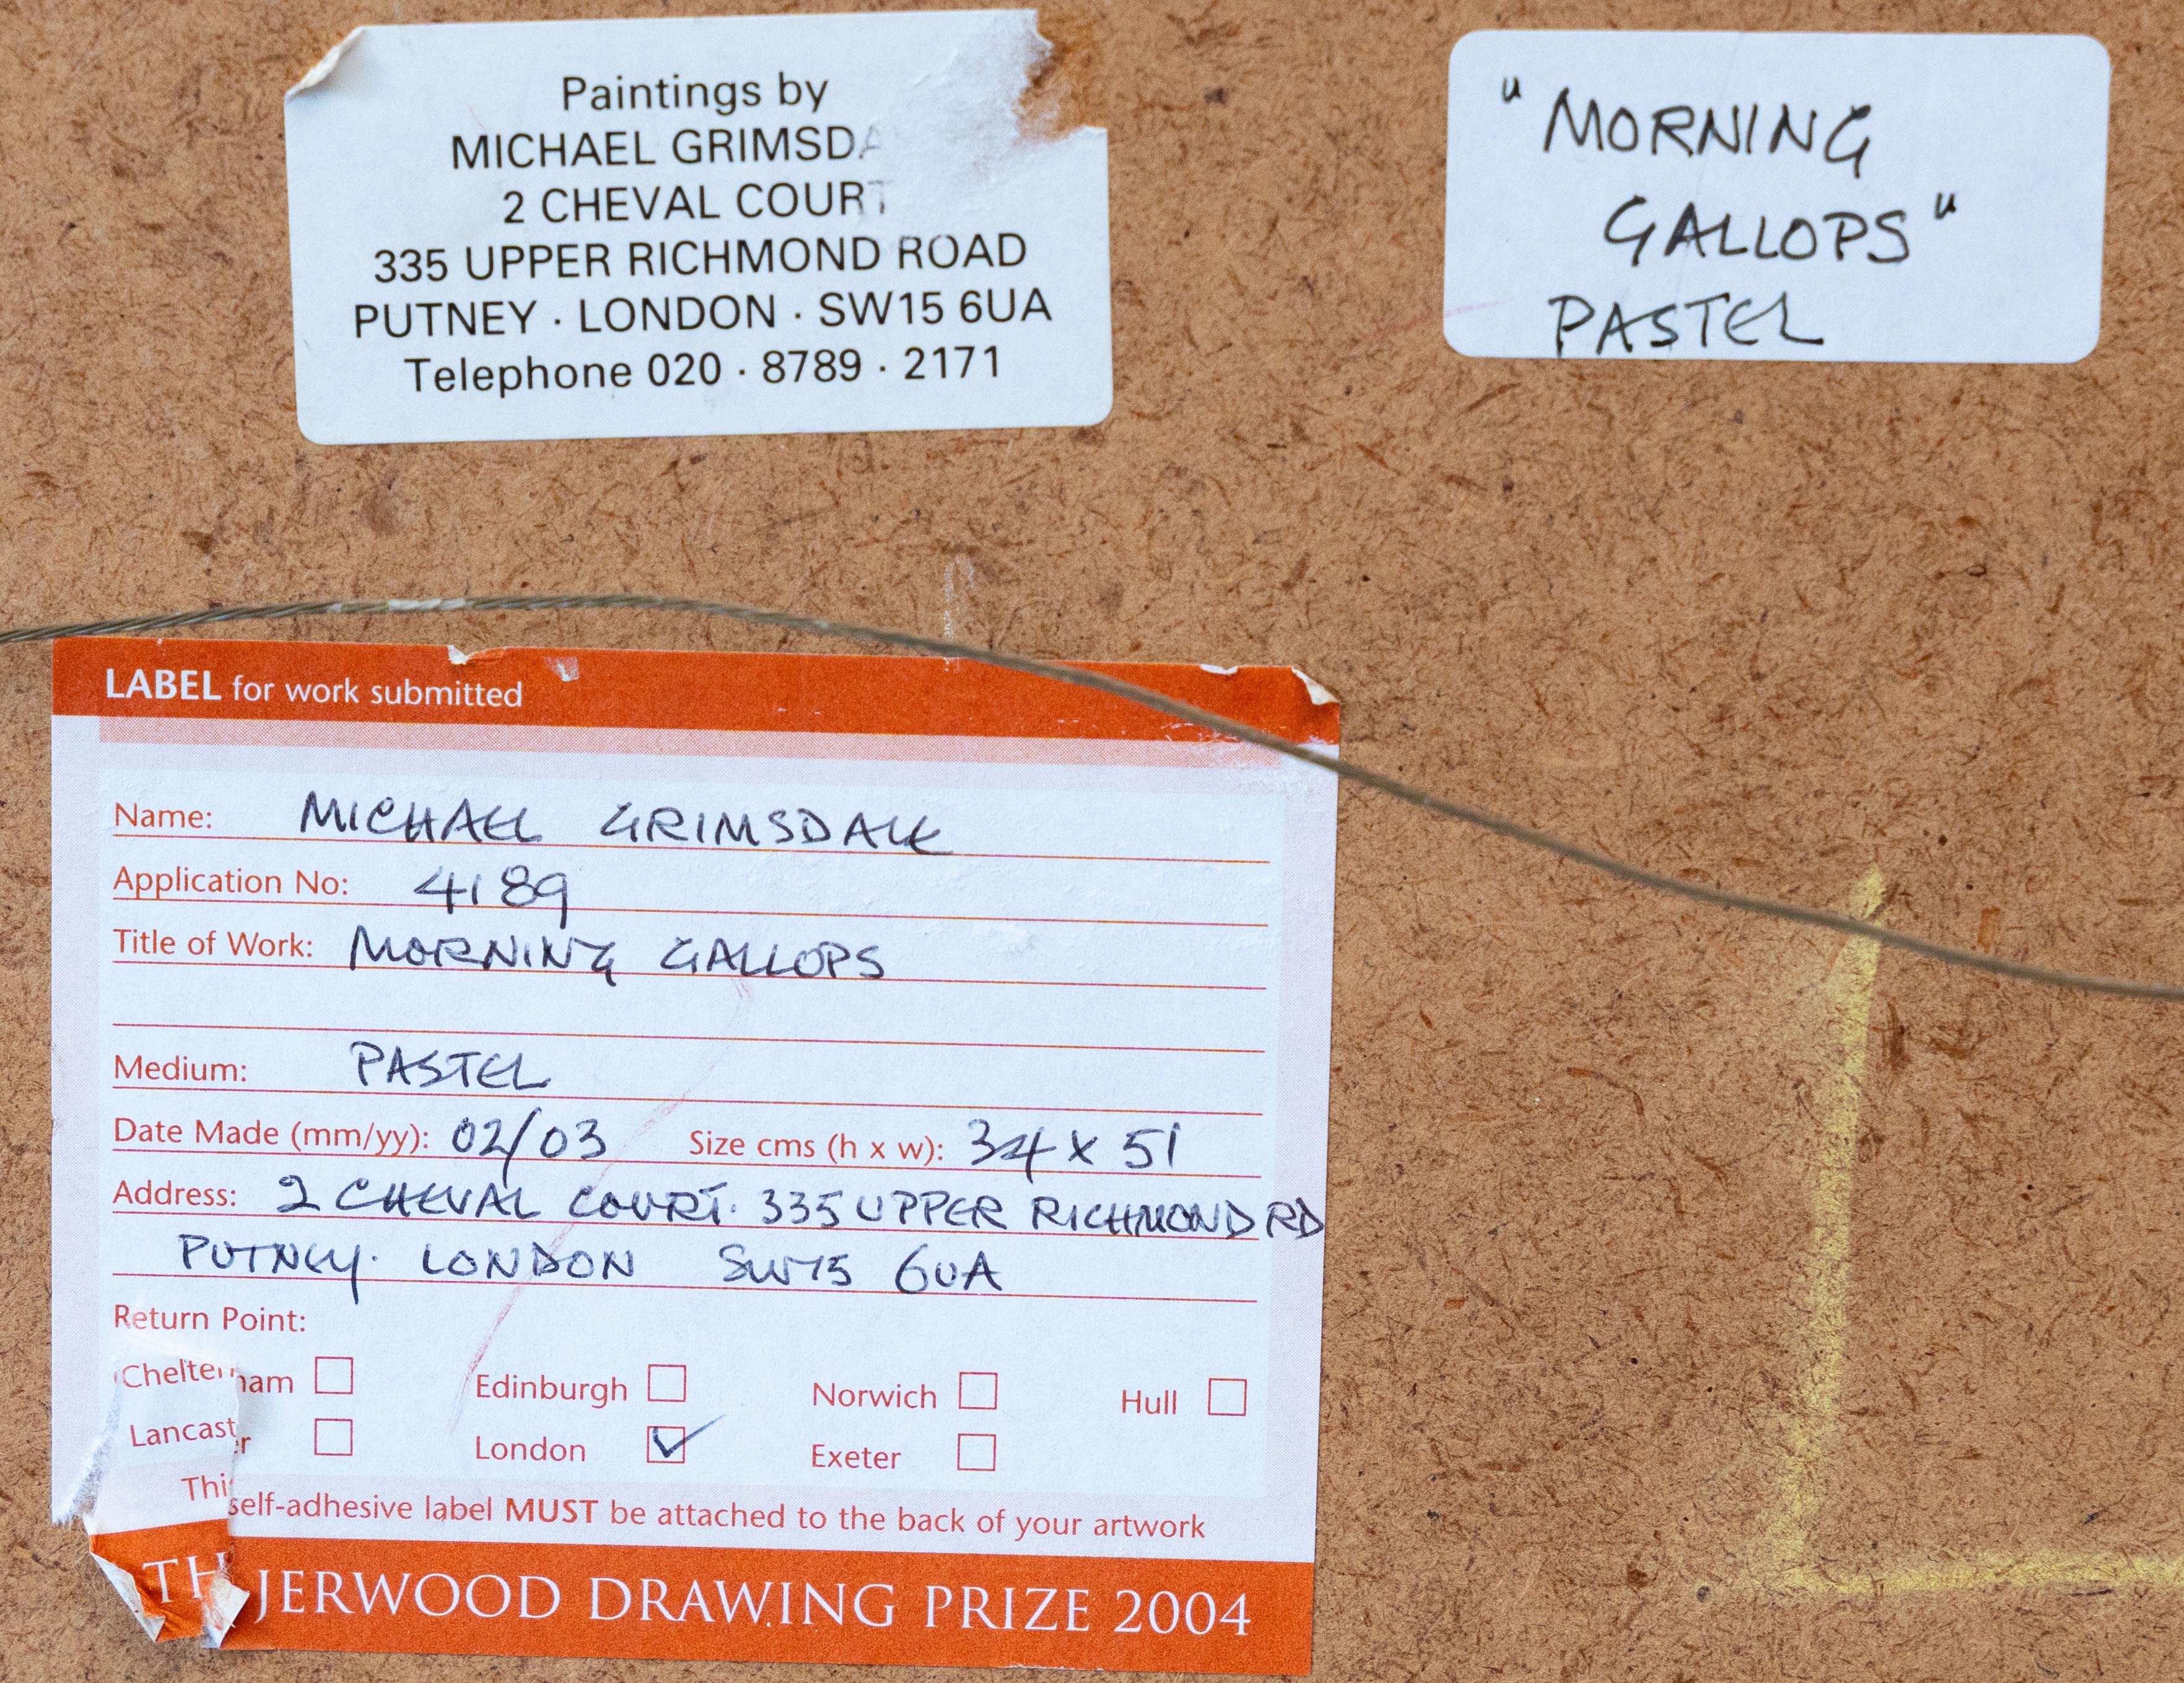 Paintings by
MICHAEL GRIMSDA
2 CHEVAL COURT
335 UPPER RICHMOND ROAD
PUTNEY · LONDON · SW15 6UA
Telephone 020 · 8789 · 2171
"MORNING
GALLOPS"
PASTEL
LABEL for work submitted
Name: MICHAEL GRIMSDALE
Application No: 4189
Title of Work: MORNING GALLOPS
Medium: PASTEL
Date Made (mm/yy): 02/03 Size cms (h x w): 34 x 51
Address: 2 CHEVAL COURT. 335 UPPER RICHMOND RD
PUTNEY. LONDON SW15 6UA
Return Point:
Cheltenham Edinburgh Norwich Hull
Lancaster London Exeter
This self-adhesive label MUST be attached to the back of your artwork
TH JERWOOD DRAWING PRIZE 2004